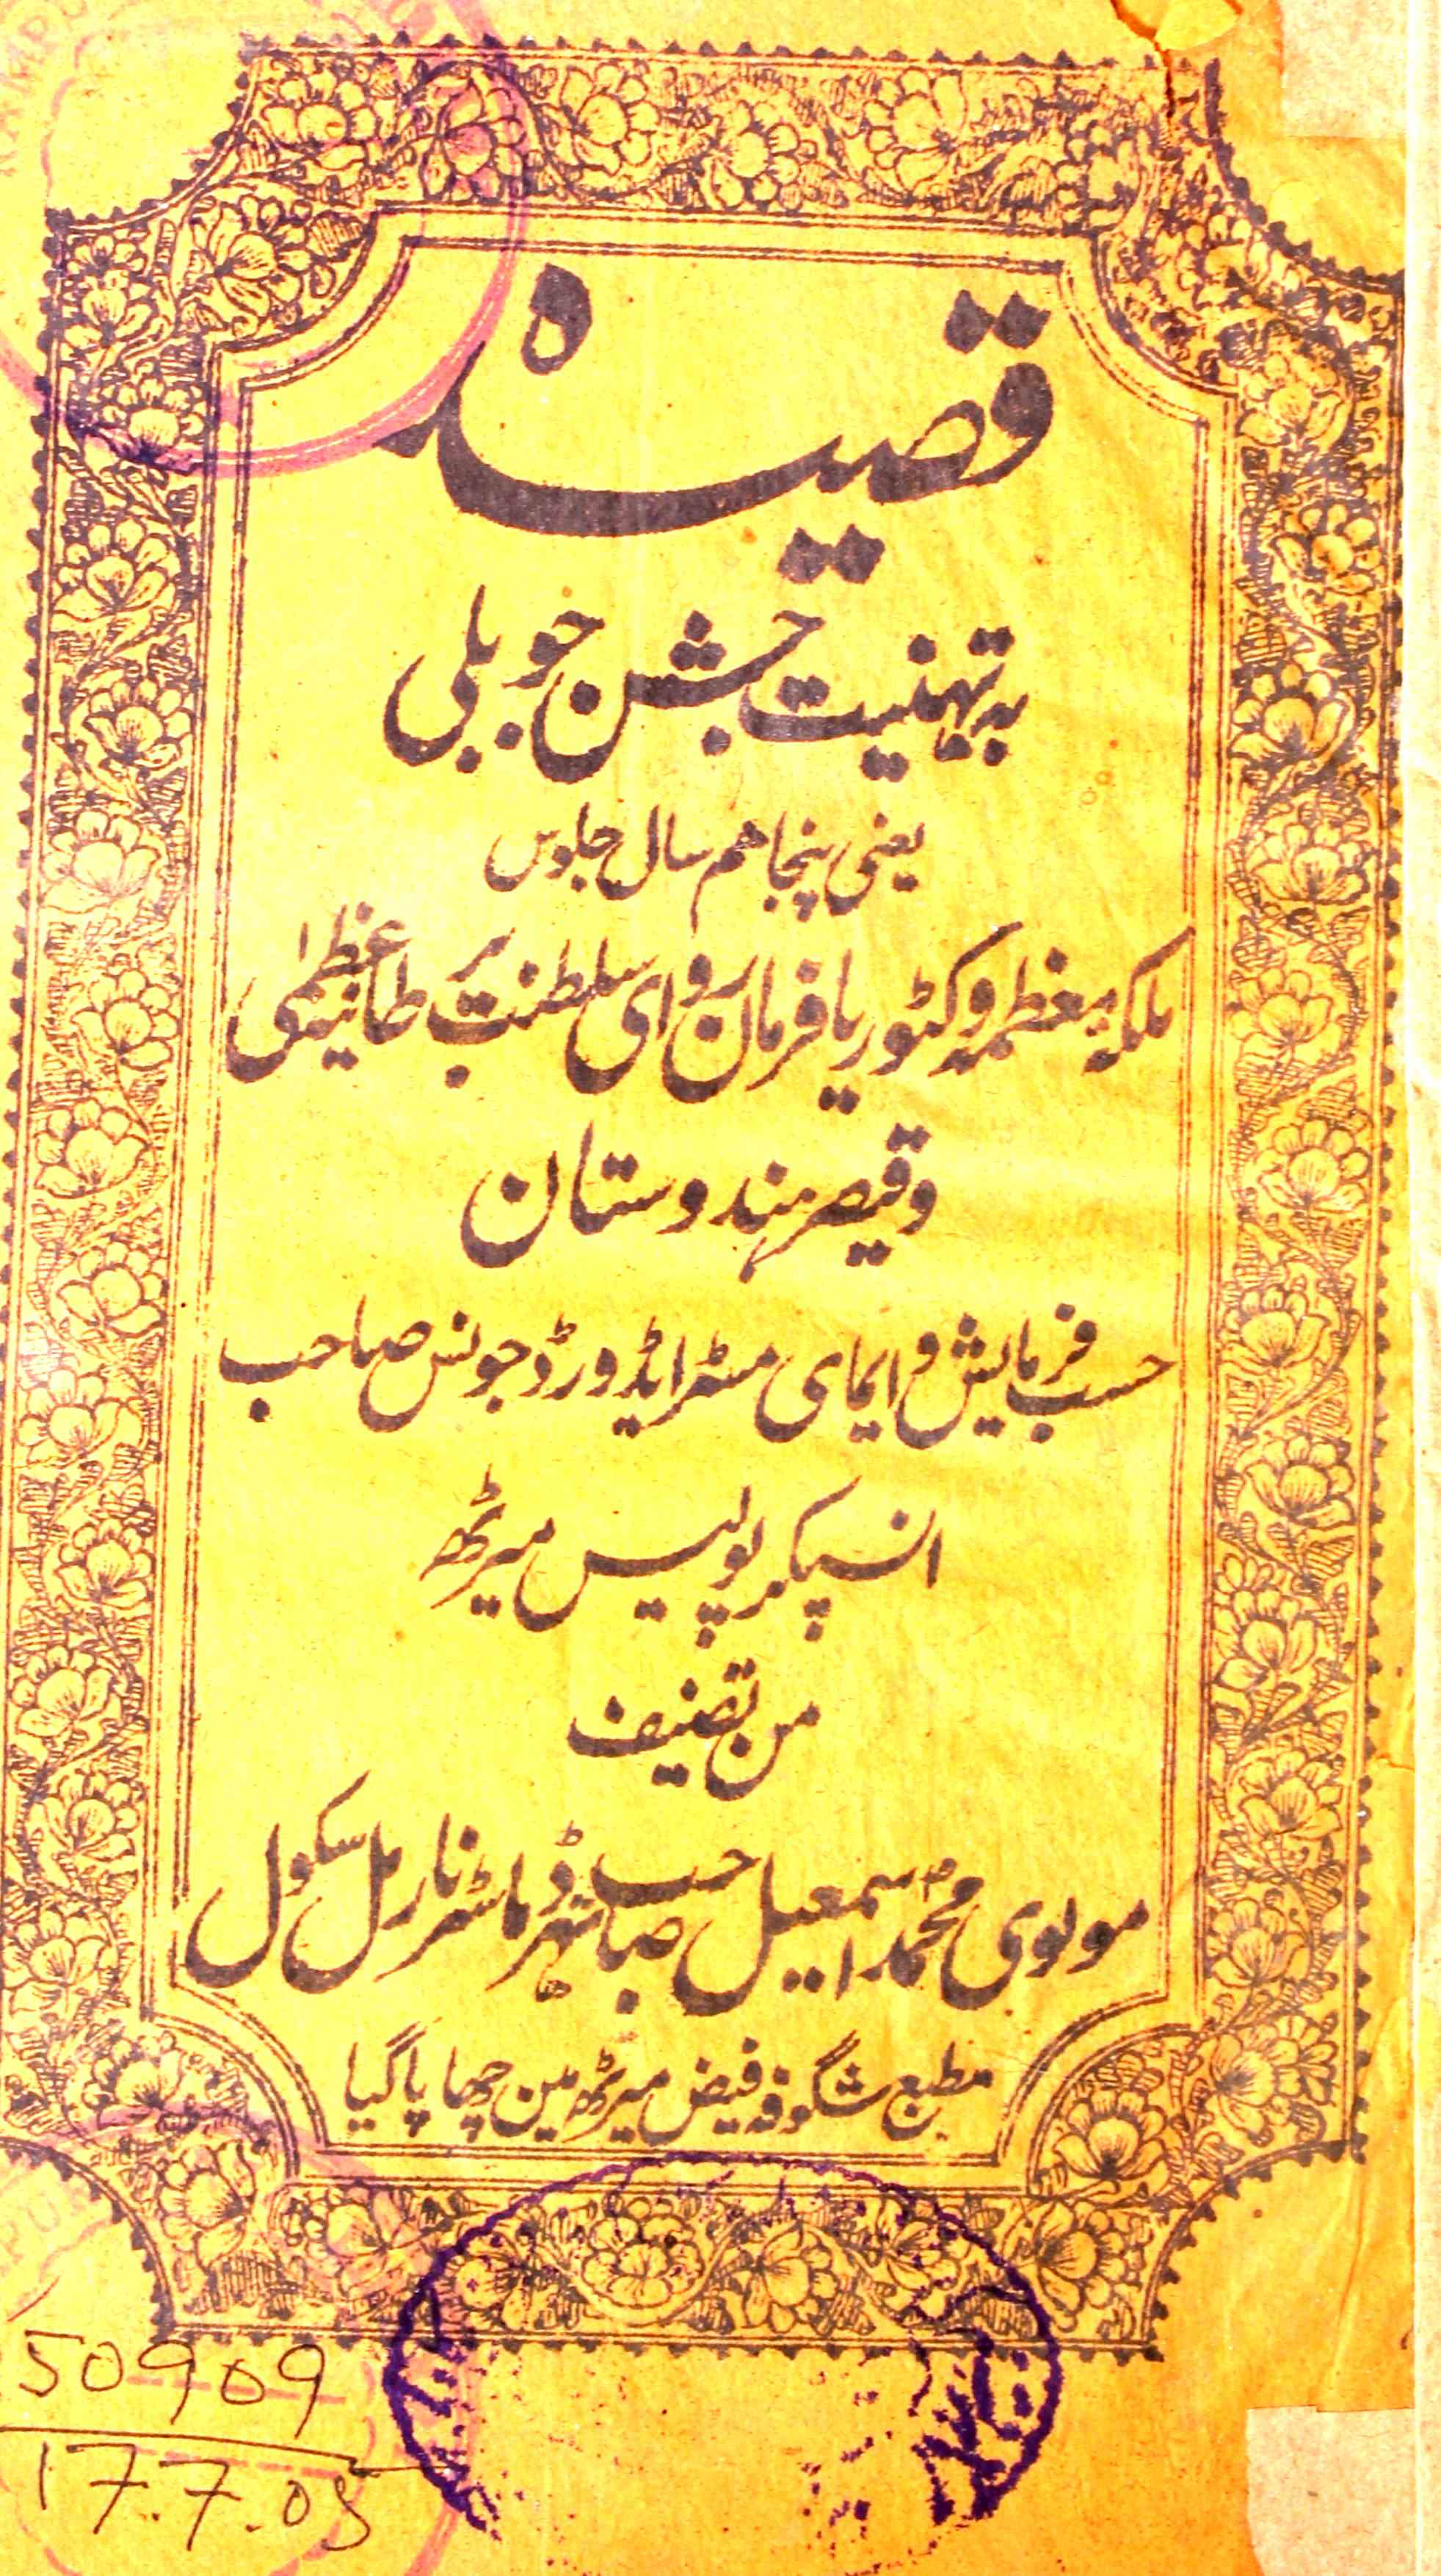 قصیدہ
بہ تہنیت جشن جوبلی
یعنی پنجاہم سال جلوس
ملکہ معظمہ وکٹوریا فرمان روای سلطنت برطانیہ عظمیٰ
و قیصر ہندوستان
حسب فرمایش و ایمای مسٹر ایڈورڈ جونس صاحب
انسپکٹر پولیس میرٹھ
من تصنیف
مولوی محمد اسمعیل صاحب ہیڈ ماسٹر نارمل سکول
مطبع شگوفہ فیض میرٹھ مین چھاپا گیا
50909
17.7.05